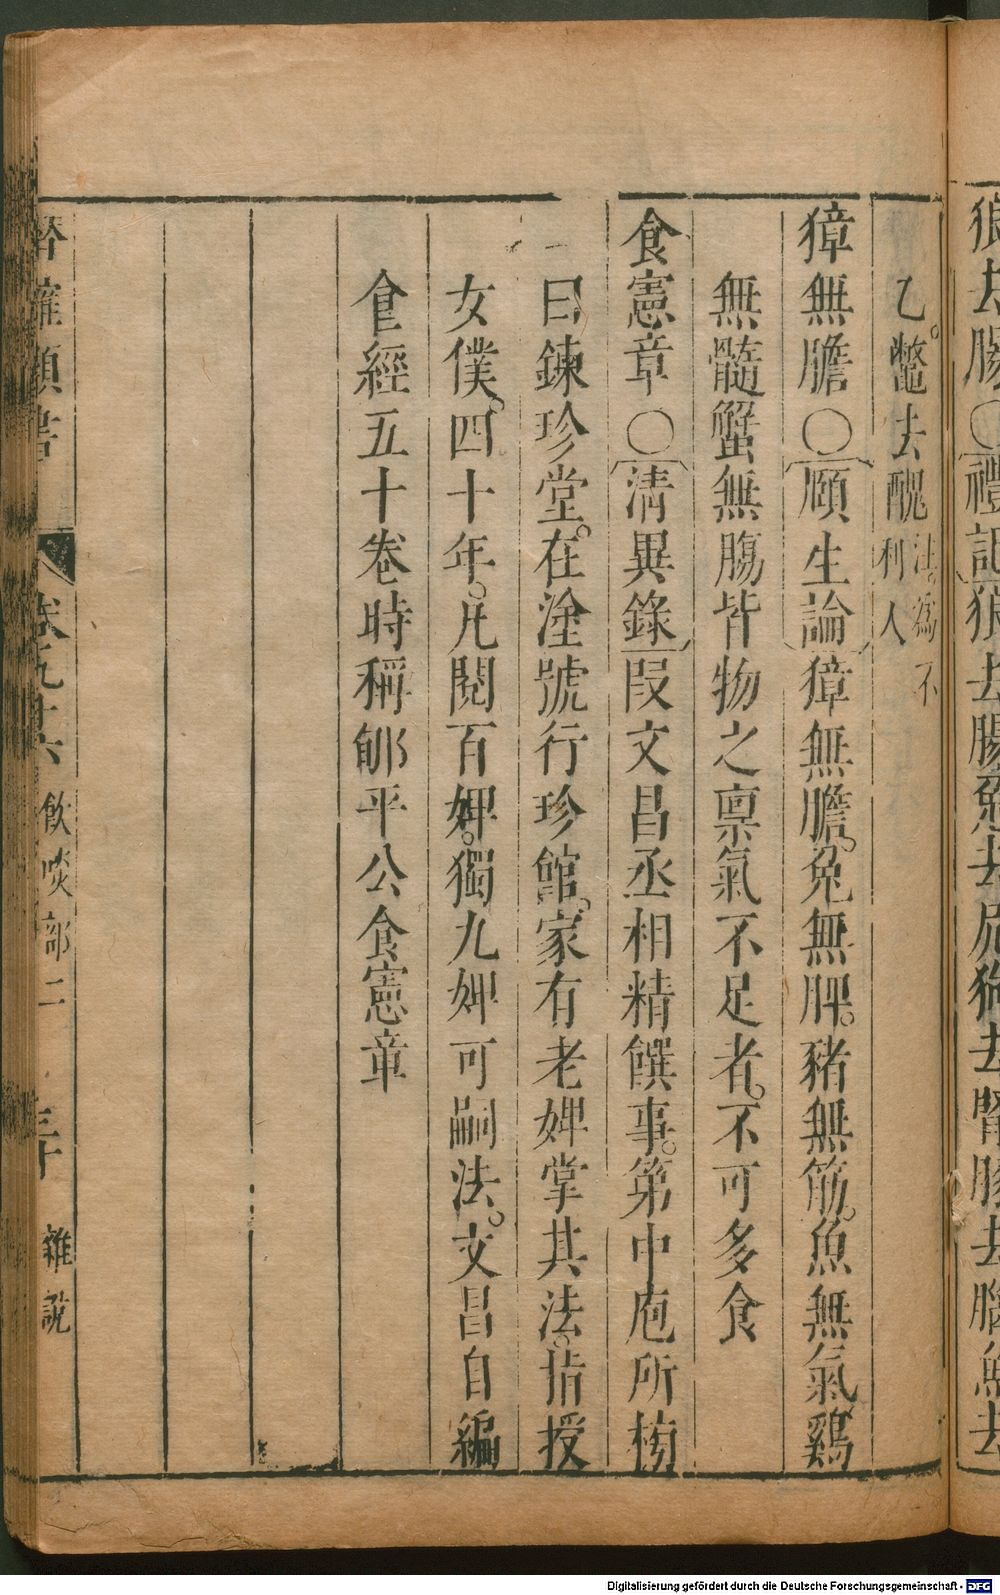 狼去腸○禮記狼去腸兎去尻狗去腎豚去腦魚去
乙。鱉去醜注。為不利人
獐無膽○頤生論獐無膽。兔無脾。豬無筋。魚無氣。鷄
無髓蟹無腸皆物之禀氣不足者。不可多食
食憲章○清異錄段文昌丞相精饌事。第中庖所榜
曰鍊珍堂。在塗號行珍館。家有老婢掌其法。指授
女僕。四十年。凡閱百婢。獨九婢可嗣法。文昌自編
食經五十卷時稱鄃平公食憲章
卷九十六 飲啖部二 三十 雜說
Digitalisierung gefördert durch die Deutsche Forschungsgemeinschaft - DFG